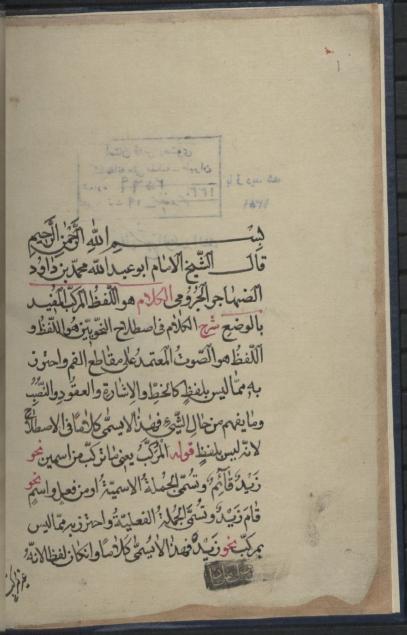 بسم الله الرحمن الرحيم
قال الشيخ الامام ابو عبد الله محمد بن داود
الصنهاجى الجرومى الكلام هو اللفظ المركب المفيد
بالوضع شرح الكلام فى اصطلاح النحويين هو اللفظ و
اللفظ هو الصوت المعتمد على مقاطع الفم واحترز
به مما ليس بلفظ كالخط والاشارة والعقود والنصب
وما يفهم من حال الشئ فهذا لا يسمى كلاما فى الاصطلاح
لانه ليس بلفظ قوله المركب يعنى ما تركب من اسمين نحو
زيد قائم وتسمى الجملة الاسمية او من فعل واسم نحو
قام زيد وتسمى الجملة الفعلية واحترز به مما ليس
بمركب نحو زيد فهذا لا يسمى كلاما وان كان لفظا لانه